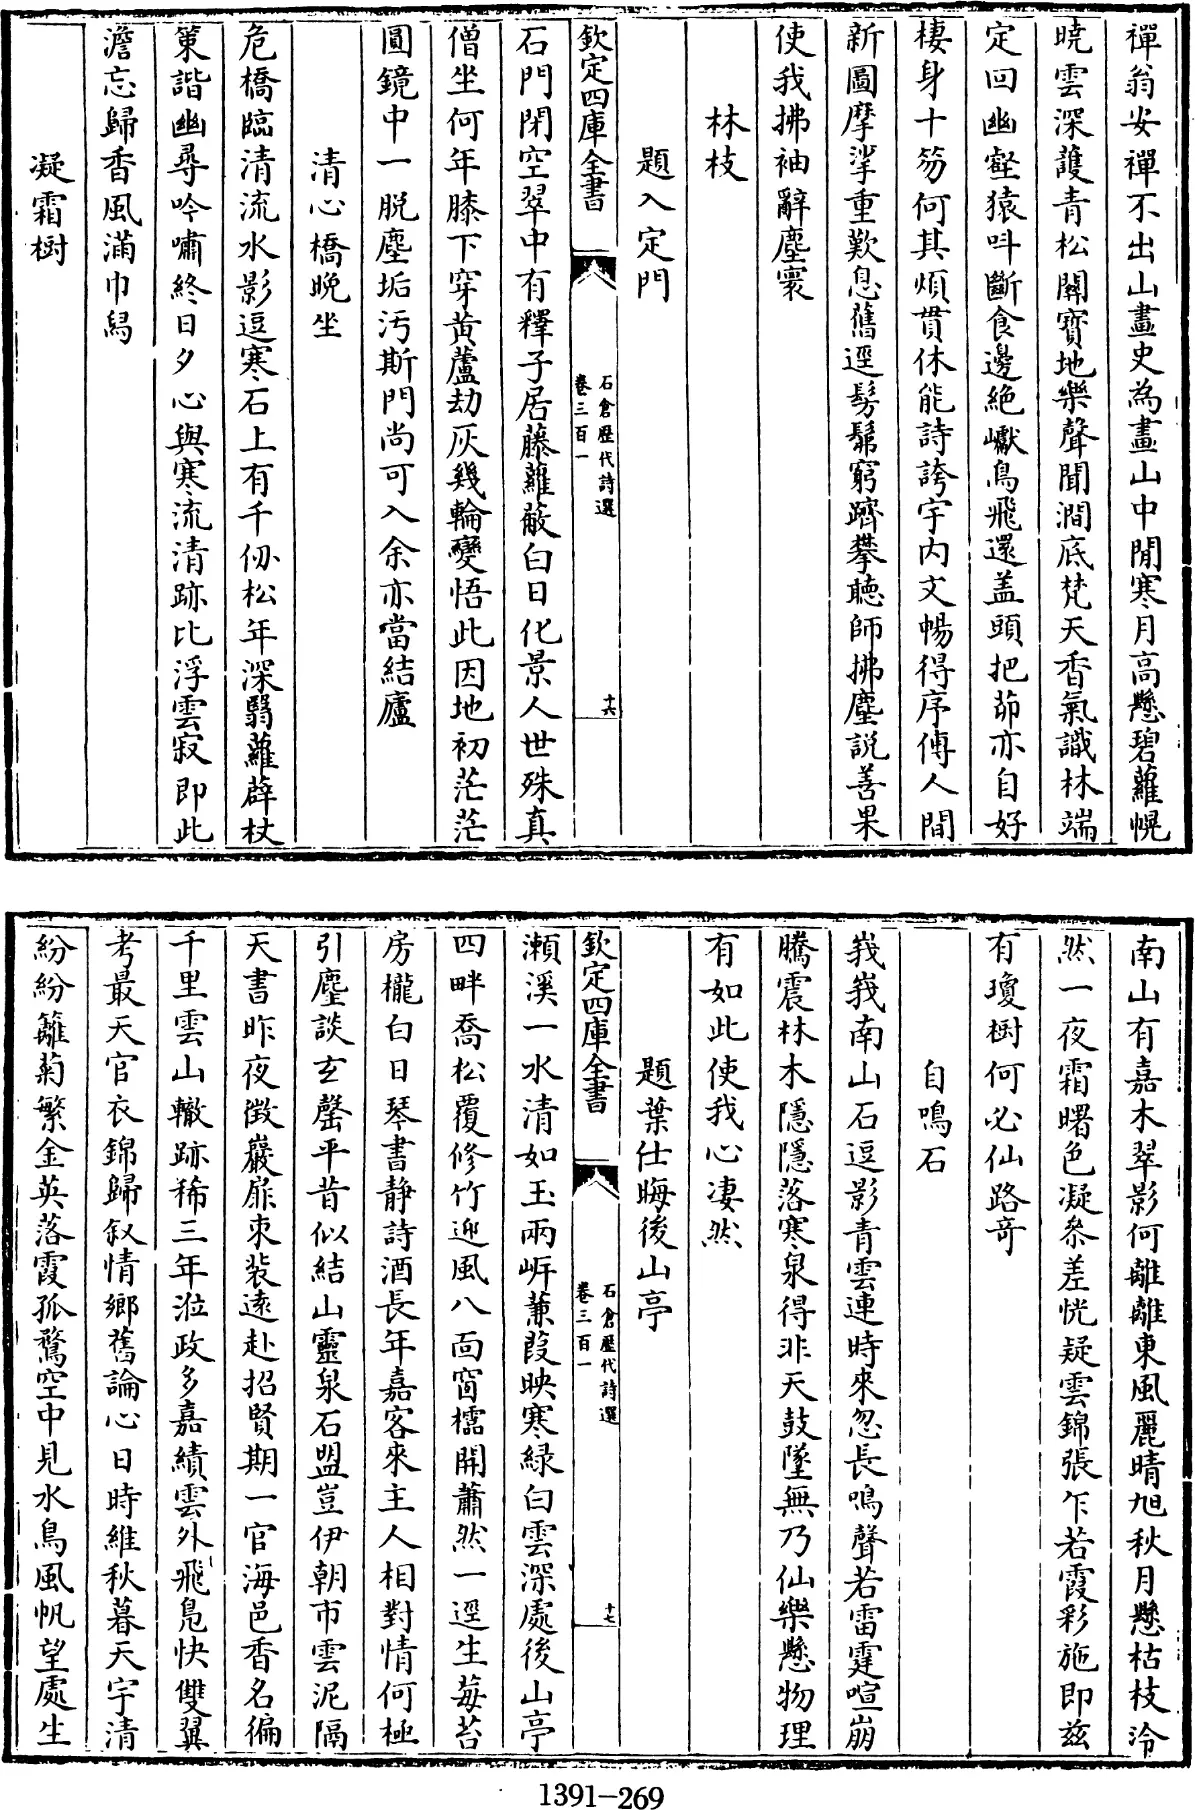 禪翁安禪不出山畫史為畫山中閒寒月高懸碧蘿幌
曉雲深護青松關寳地樂聲聞澗底梵天香氣識林端
定回幽壑猿呌斷食邊絶巘鳥飛還盖頭把茆亦自好
棲身十笏何其煩貫休能詩誇宇内文暢得序傳人間
新圖摩挲重歎息舊逕髣髴窮躋攀聽師拂麈説善果
使我拂袖辭塵寰
林枝
題入定門
欽定四庫全書
石倉歴代詩選
卷三百一
十六
石門閉空翠中有釋子居藤蘿蔽白日化景人世殊真
僧坐何年膝下穿黄蘆劫灰幾輪變悟此因地初茫茫
圓鏡中一脱塵垢汚斯門尚可入余亦當結廬
清心橋晚坐
危橋臨清流水影逗寒石上有千仞松年深翳蘿薜杖
策諧幽尋吟嘯終日夕心與寒流清跡比浮雲寂即此
澹忘歸香風滿巾舄
凝霜樹
南山有嘉木翠影何離離東風麗晴旭秋月懸枯枝泠
然一夜霜曙色凝參差恍疑雲錦張乍若霞彩施即兹
有瓊樹何必仙路奇
自鳴石
峩峩南山石逗影青雲連時來忽長鳴聲若雷霆喧崩
騰震林木隱隱落寒泉得非天鼓墜無乃仙樂懸物理
有如此使我心凄然
題葉仕晦後山亭
欽定四庫全書
石倉歷代詩選
卷三百一
十七
瀬溪一水清如玉兩岍蒹葭映寒緑白雲深處後山亭
四畔喬松覆修竹迎風八面窗櫺開蕭然一逕生莓苔
房櫳白日琴書静詩酒長年嘉客來主人相對情何極
引麈談玄罄平昔似結山靈泉石盟豈伊朝市雲泥隔
天書昨夜徴巖扉束装遠赴招賢期一官海邑香名徧
千里雲山轍跡稀三年涖政多嘉績雲外飛鳬快雙翼
考最天官衣錦歸叙情鄉舊論心日時維秋暮天宇清
紛紛籬菊繁金英落霞孤鶩空中見水鳥風帆望處生
1391—269